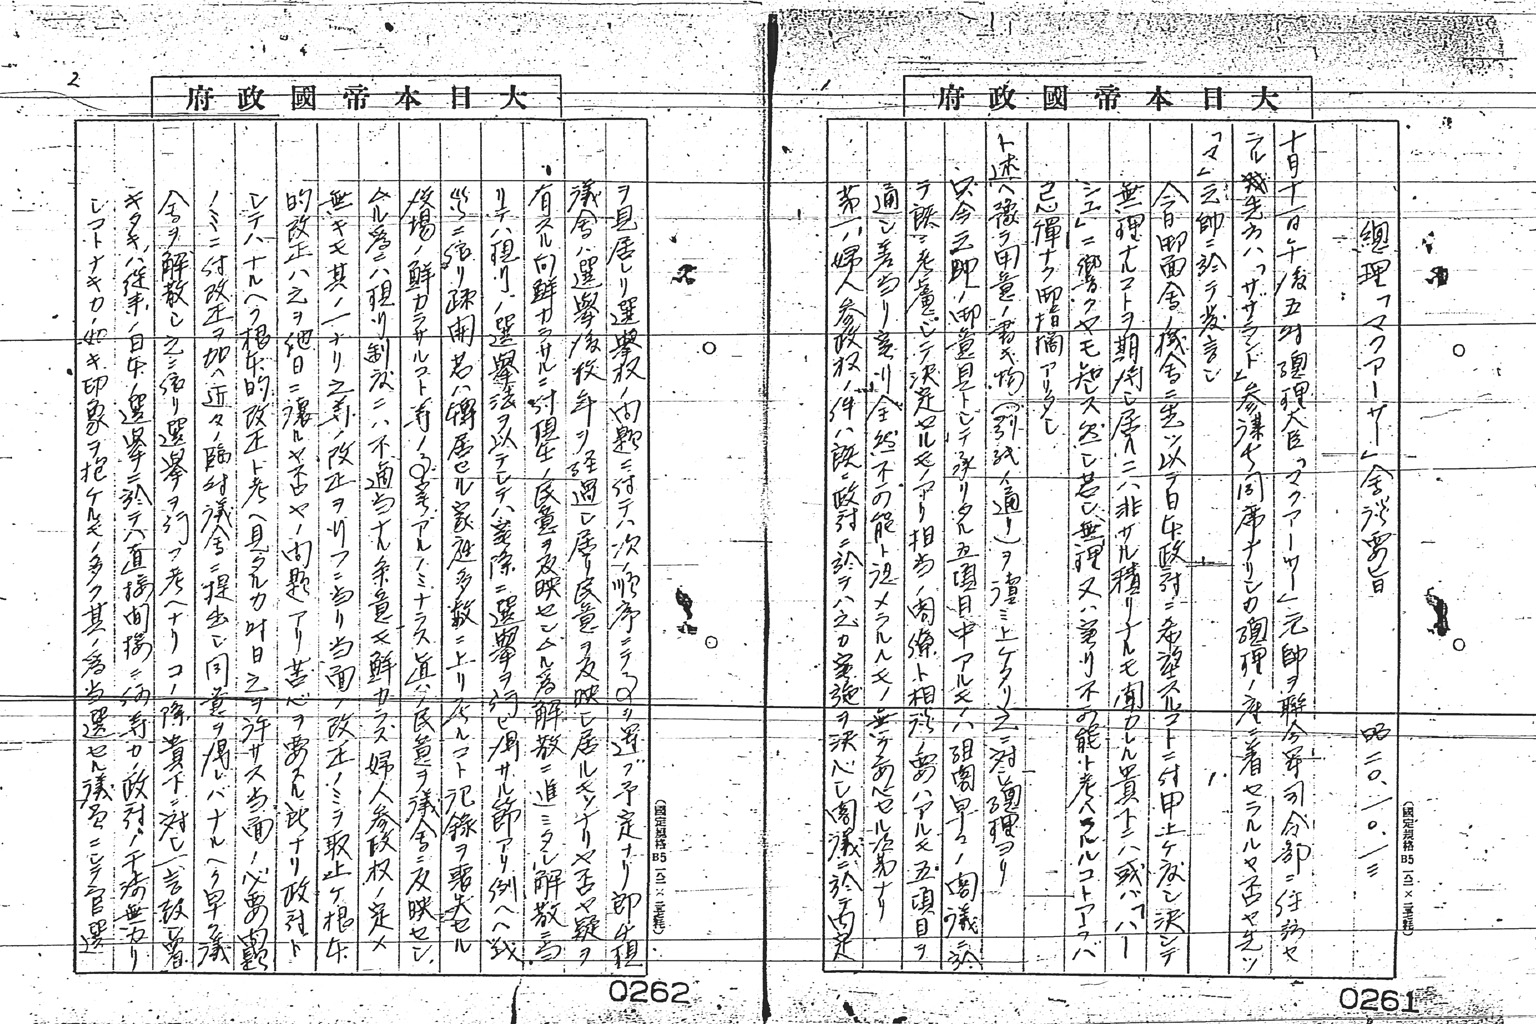 大日本帝國政府
總理「マクアーサー」會談要旨 昭二〇、一〇、一三
十月十一日午後五時總理大臣「マクアーサー」元帥ヲ聯合軍司令部ニ往訪セ
ラル 先方ハ「サザランド」参謀長同席ナリシカ總理ノ座ニ着セラルルヤ否ヤ先ツ
「マ」元帥ニ於テ發言シ
今日御面會ノ機會ニ先ツ以テ日本政府ニ希望スルコトニ付申上ケ度シ決シテ
無理ナルコトヲ期待シ居ルニハ非サル積リナルモ聞カレル貴下ニハ或ハ「ハー
シュ」ニ響クヤモ知レス然シ若シ無理又ハ實行不可能ト考ヘラルルコトアラバ
忌憚ナク御指摘アリタシ
ト述ヘ豫テ用意ノ書キ物(別紙ノ通リ)ヲ讀ミ上ケタリ之ニ対シ總理ヨリ
只今元帥ノ御意見トシテ承リタル五項目中アルモノハ組閣早々ノ閣議ニ於
テ既ニ考慮シテ決定セルモノアリ相当ノ閣僚ト相談ノ要ハアルモ五項目ヲ
通シ差当リ實行全然不可能ト認メラルルモノ無
第一ハ婦人参政権ノ件ハ既ニ政府ニ於テハ之カ實施ヲ決心シ閣議ニ於テ内定
(國定規格B5 一八二×二五七粍)
0261
2
大日本帝國政府
ヲ見居レリ選擧权ノ問題ニ付テハ次ノ順序ニテ事ヲ運ブ予定ナリ即チ現
議會ハ選擧後数年ヲ経過シ居リ民意ヲ反映シ居ルモノナリヤ否ヤ疑ヲ
有スル向鮮カラサルニ付現在ノ民意ヲ反映セシムル為解散ニ進ミタシ解散ニ当
リテハ現行ノ選擧法ヲ以テシテハ實際ニ選擧ヲ行ヒ得サル節アリ例ヘハ戦
災ニ依リ疎開若ハ轉居セル家族多数ニ上リ ルコト記錄ヲ喪失セル
役場ノ鮮カラサルコト等ノ事實アルノミナラス眞ノ民意ヲ議會ニ反映セシ
ムル為ニハ現行制度ニハ不適当ナル条章モ鮮カラズ婦人参政权ノ定メ
無キモ其ノ一ナリ之等ノ改正ヲ行フニ当リ当面ノ改正ノミニ取止ケ根本
的改正ハ之ヲ他日ニ讓ルヤ否ヤノ問題アリ苦心ヲ要スル点ナリ政府ト
シテハナルヘク根本的改正ト考ヘ見タルカ時日之ヲ許サス当面ノ必要問題
ノミニ付改正ヲ加ヘ近々ノ臨時議會ニ提出シ同意ヲ得レバナルヘク早ク議
會ヲ解散シ之ニ依リ選擧ヲ行フ考ヘナリコノ際貴下ニ対シ一言致シ置
キタキハ従来ノ日本ノ選擧ニ於テハ直接間接ニ何等カノ政府ノ干渉無カリ
シコトナキカノ如キ印象ヲ抱ケルモノ多ク其ノ為当選セル議員ニシテ官選
(國定規格B5 一八二×二五七粍)
0262